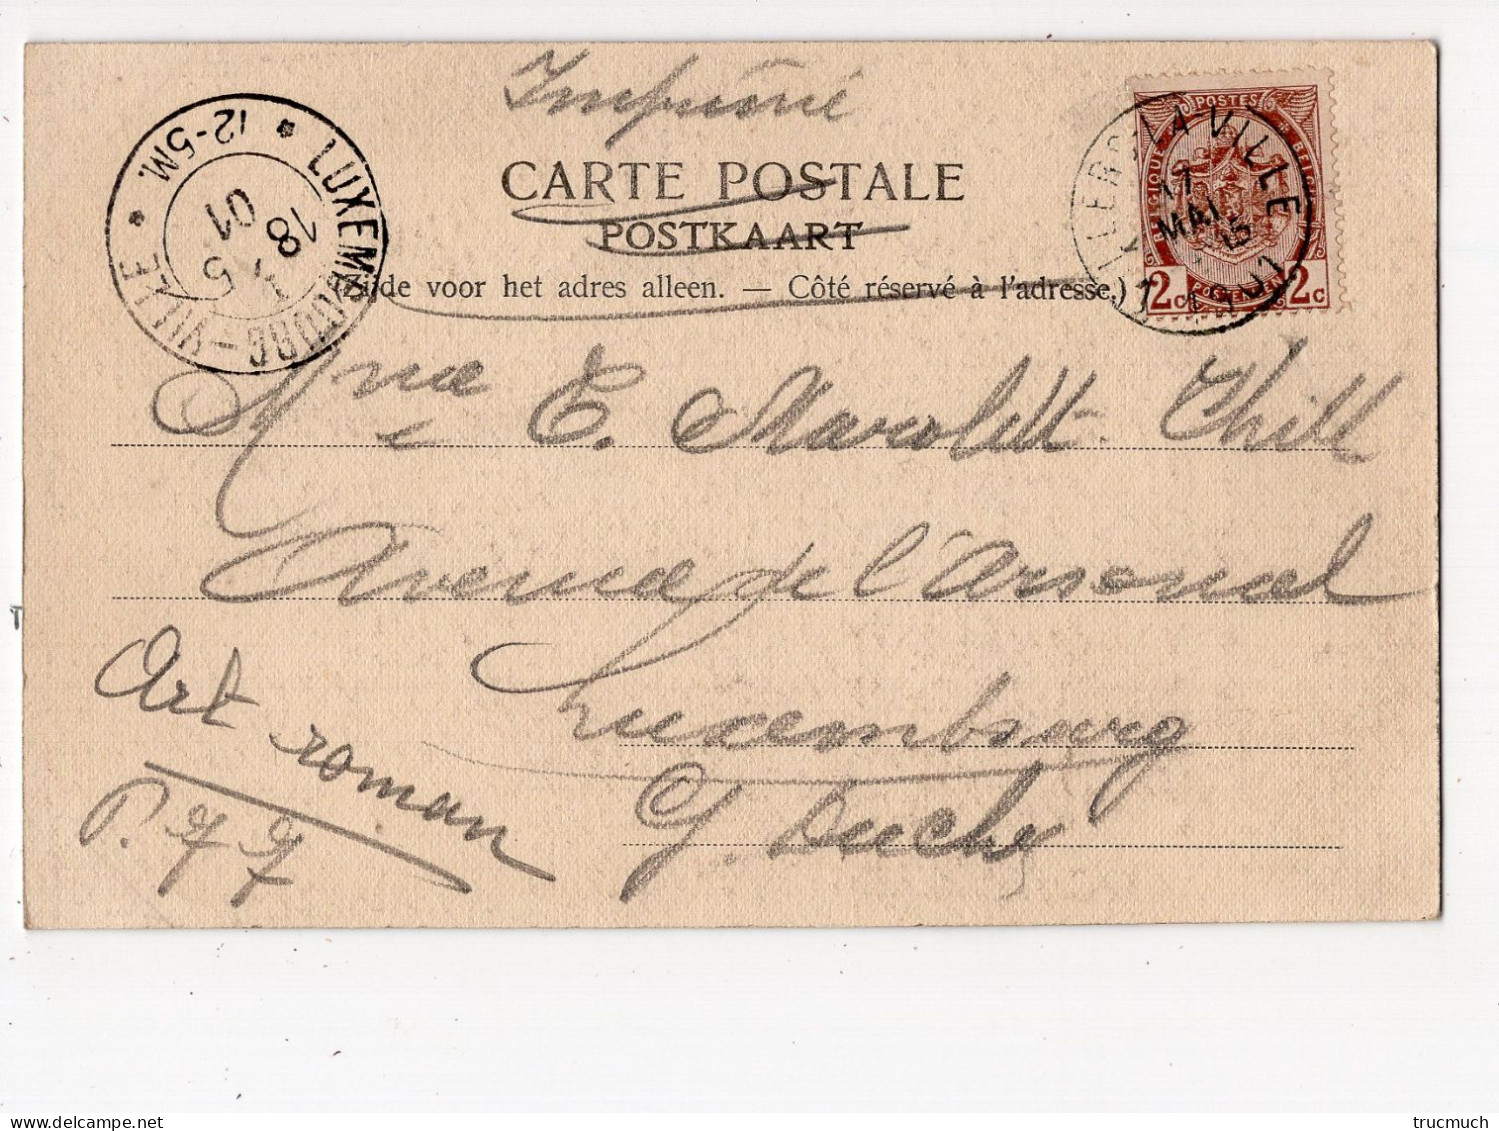 Imprimé
CARTE POSTALE
POSTKAART
(Zijde voor het adres alleen. — Côté réservé à l'adresse.)
LUXEMBOURG-VILLE
12-5M.
18
5
01
LA-VILLE
17
MAI
POSTES
BELGIQUE
2c 2c
Mme E. Maroldt-Thill
Avenue de l'Arsenal
Luxembourg
G. Duché
Art roman
P.
trucmuch